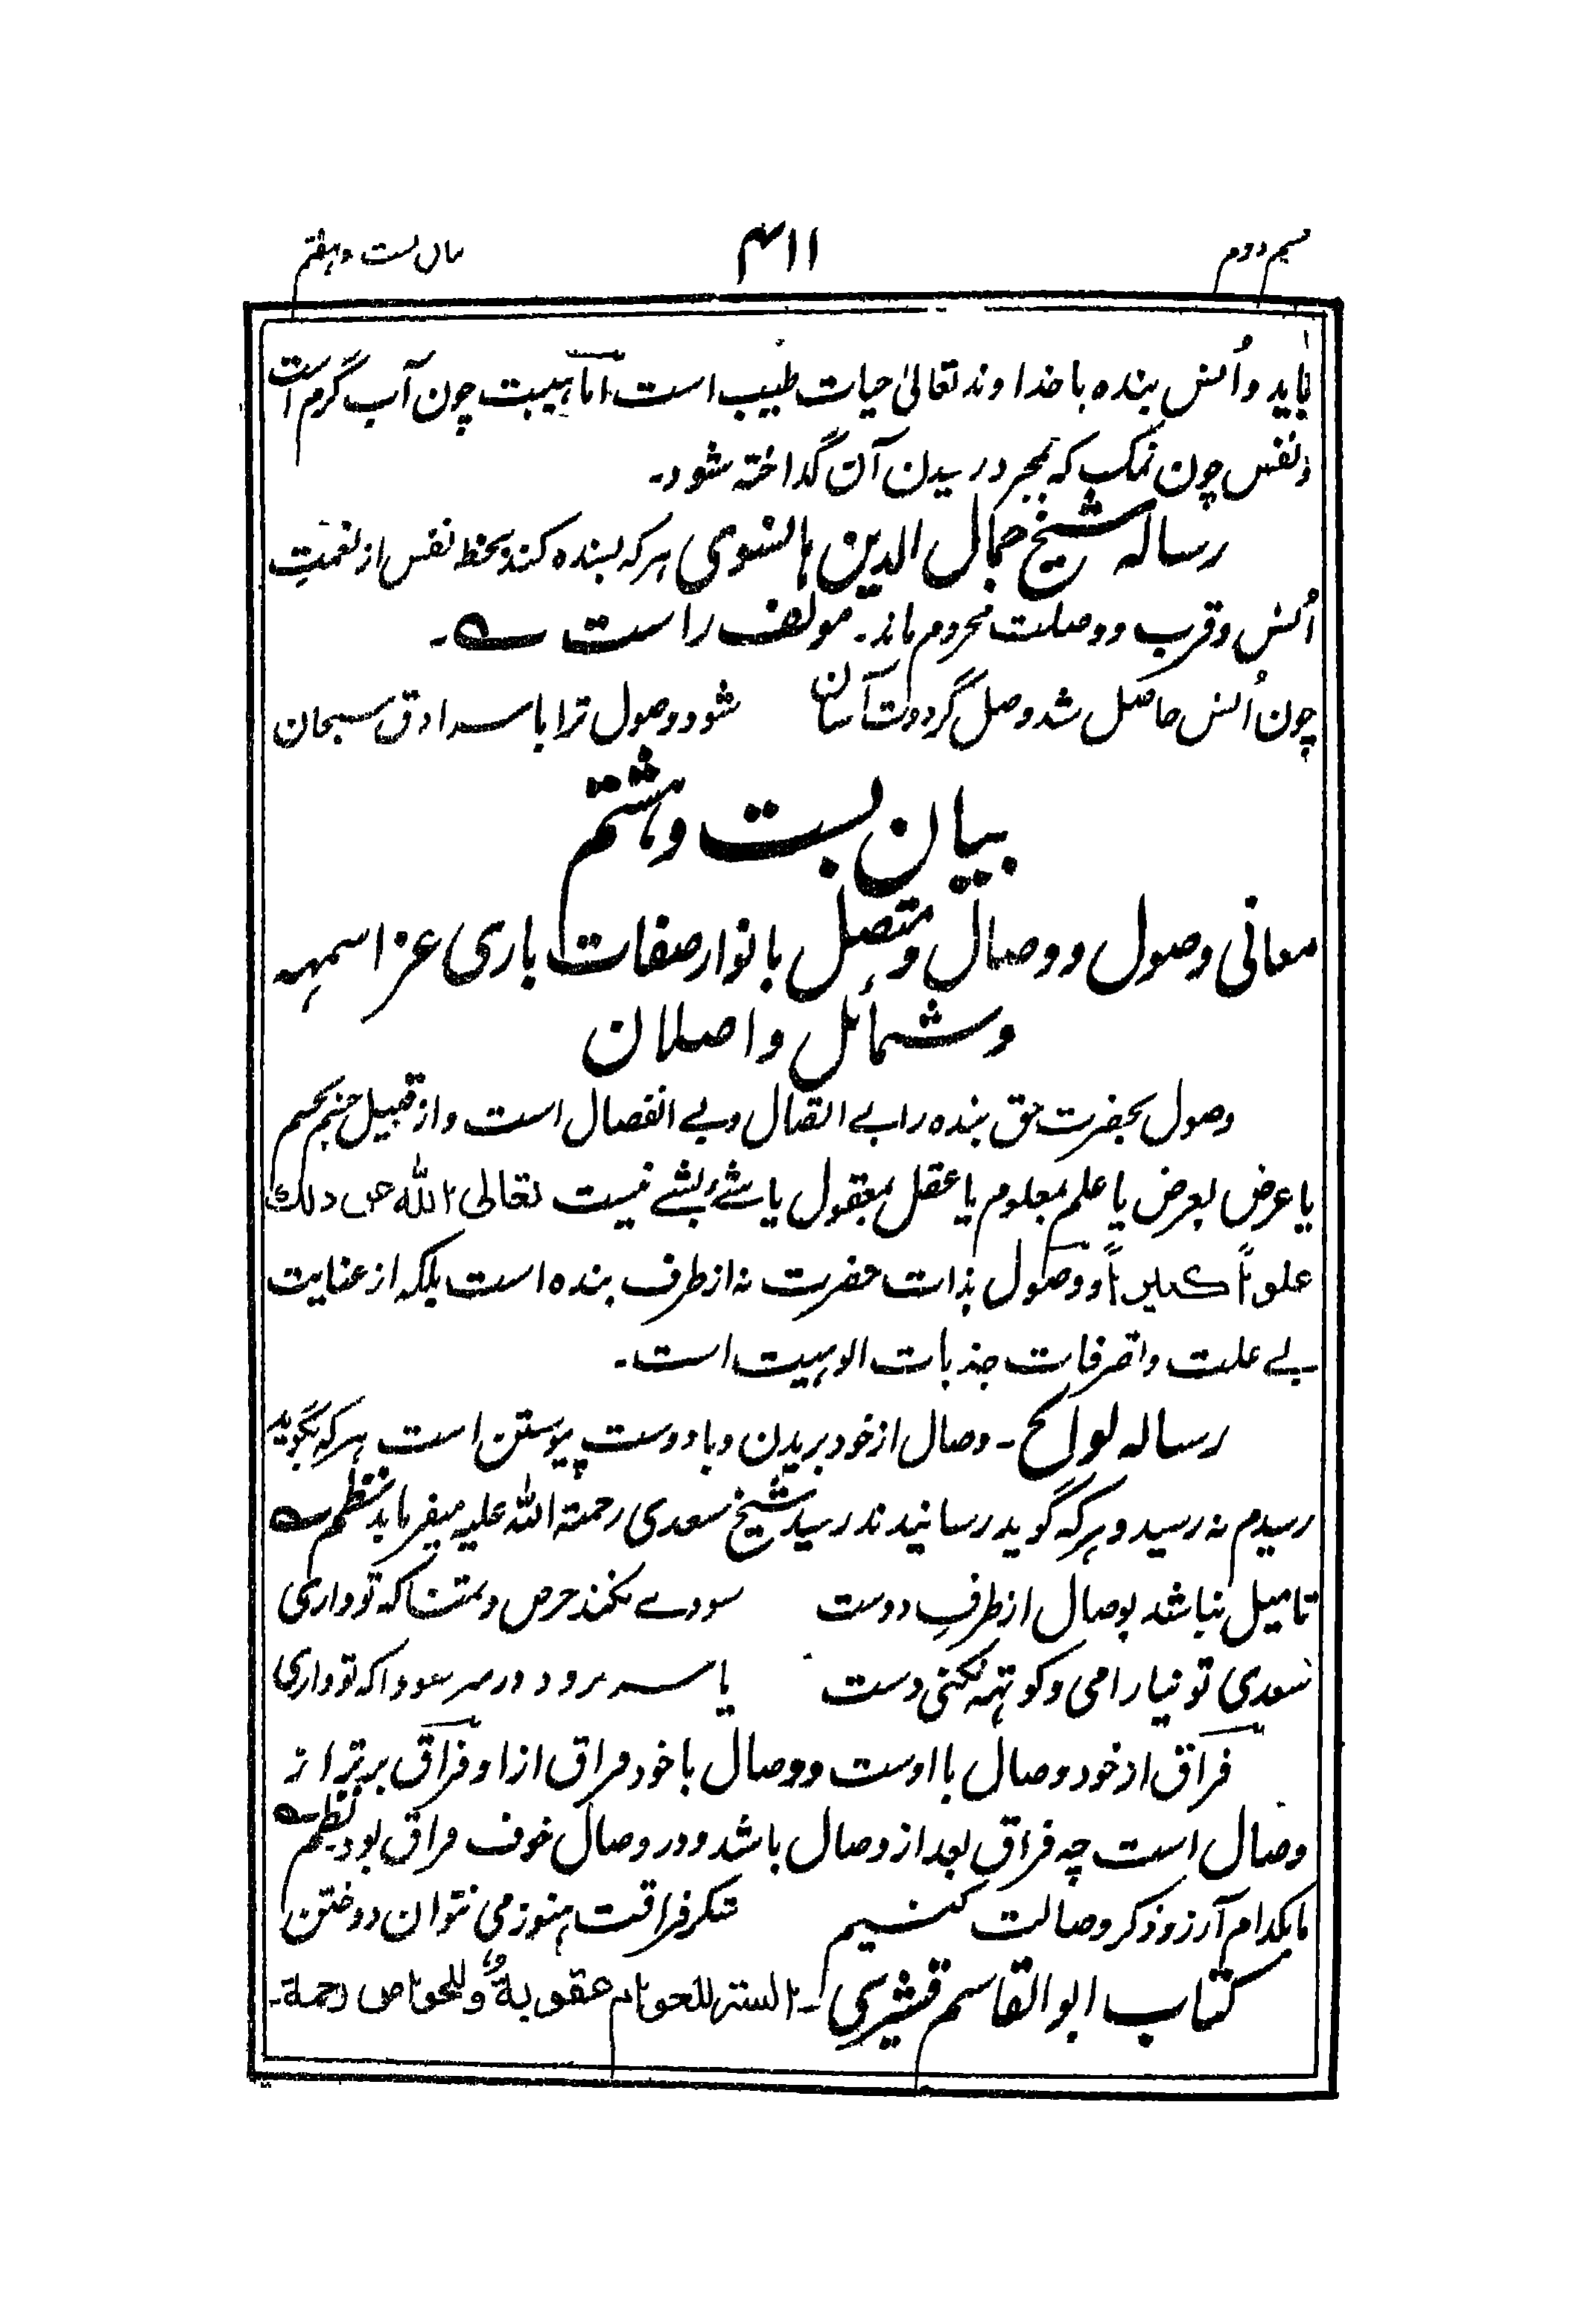 قسم دوم ۴۱۱ بیان بست و ہفتم
باید و اُنس بندہ با خداوند تعالیٰ حیات طیب است اما ہیبت چون آب گرم است
و نفس چون نمک کہ بمجرد رسیدن آن گداختہ شود۔
رسالہ شیخ جمال الدین ہانسوی ہر کہ بسندہ کند بحظ نفس از نعمتِ
اُنس و قرب و وصلت محروم ماند۔ مولف راست ؎۔
چون اُنس حاصل شد وصل گرددت آسان شود وصول ترا با سرادق سبحان
بیان بست و ہشتم
معانی وصول و وصال و متصل بانوار صفات باری عز اسمہہ
و شمائل واصلان
وصول بحضرت حق بندہ را بے اتصال و بے انفصال است و از قبیل جسم بجسم
یا عرض بعرض یا علم بمعلوم یا عقل بمعقول یا شئے بشئے نیست تعالی اللہ عن ذلک
علواً کبیراً و وصول بذات حضرت نہ از طرف بندہ است بلکہ از عنایت
بے علت و تصرفات جذبات الوہیت است۔
رسالہ لوائح۔ وصال از خود بریدن و با دوست پیوستن است ہر کہ بگوید
رسیدم نہ رسید و ہر کہ گوید رسانیدند رسید شیخ سعدی رحمتہ اللہ علیہ میفرماید نظم ؎
تا میل نباشد بوصال از طرفِ دوست سودے نکند حرص و تمنا کہ تو داری
سعدی تو نیارامی و کوتہ نکنی دست تا سر برود در سر سودا کہ تو داری
فراق از خود وصال با اوست و وصال با خود فراق ازا و فراق برتر از
وصال است چہ فراق بعد از وصال باشد و در وصال خوف فراق بود نظم ؎
ما بکدام آرزو ذکر وصالت کنیم شکر فراقت ہنوز می نتوان دوختن
کتاب ابوالقاسم قشیری۔ الستر للعوام عقوبةٌ وللخواص رحمة۔